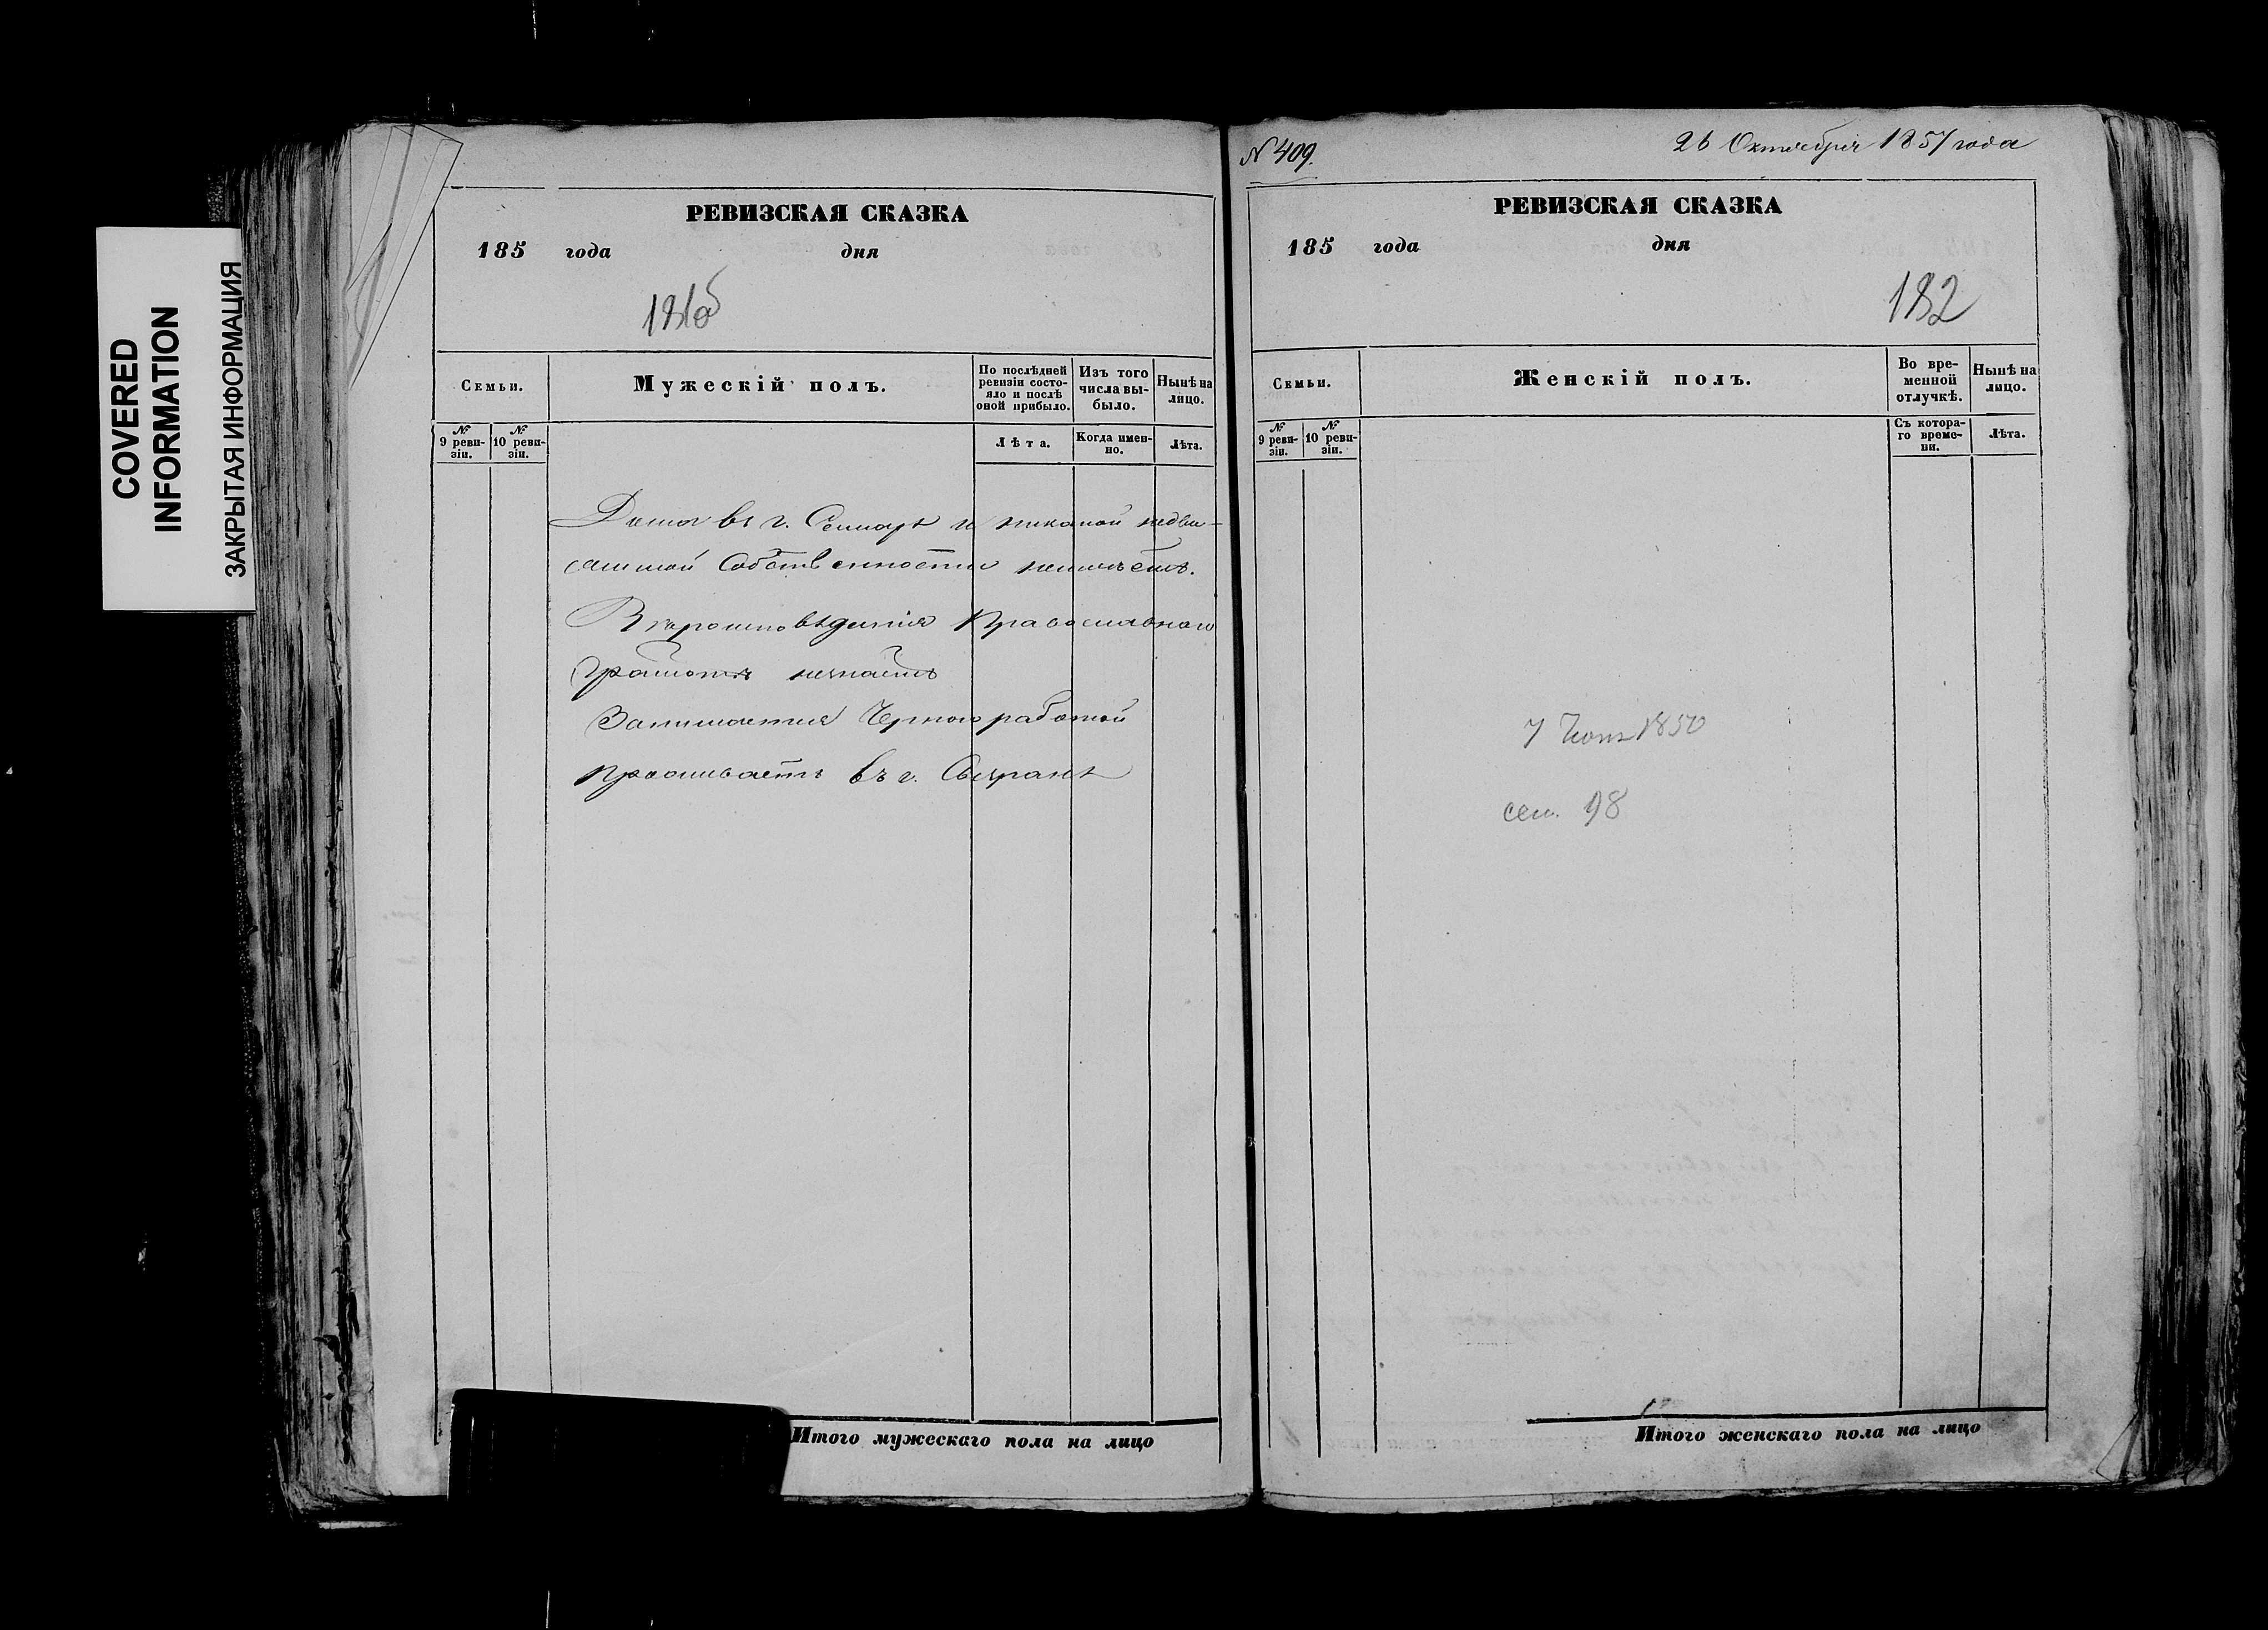 COVERED
INFORMATION
ЗАКРЫТАЯ ИНФОРМАЦИЯ
РЕВИЗСКАЯ СКАЗКА
185 года дня
Семьи.
Мужескій полъ.
По послѣдней
ревизіи состо-
яло и послѣ
оной прибыло.
Изъ того
числа вы-
было.
Нынѣ на
лицо.
№
9 реви-
зіи.
№
10 реви-
зіи.
Лѣта.
Когда имен-
но.
Лѣта.
Дома въ г. Самарѣ и никакой недви-
жимой Собственности неимѣетъ.
Вѣроисповѣданія Православнаго
Грамотѣ незнаетъ
Занимается Черною работой
проживаетъ въ г. Сызранѣ
Итого мужескаго пола на лицо
N 409.
26 Октября 1857 года
РЕВИЗСКАЯ СКАЗКА
185 года дня
182
Семьи.
Женскій полъ.
Во вре-
менной
отлучкѣ.
Нынѣ на
лицо.
№
9 реви-
зіи.
№
10 реви-
зіи.
Съ котора-
го време-
ни.
Лѣта.
7 1850
сем. 98
Итого женскаго пола на лицо